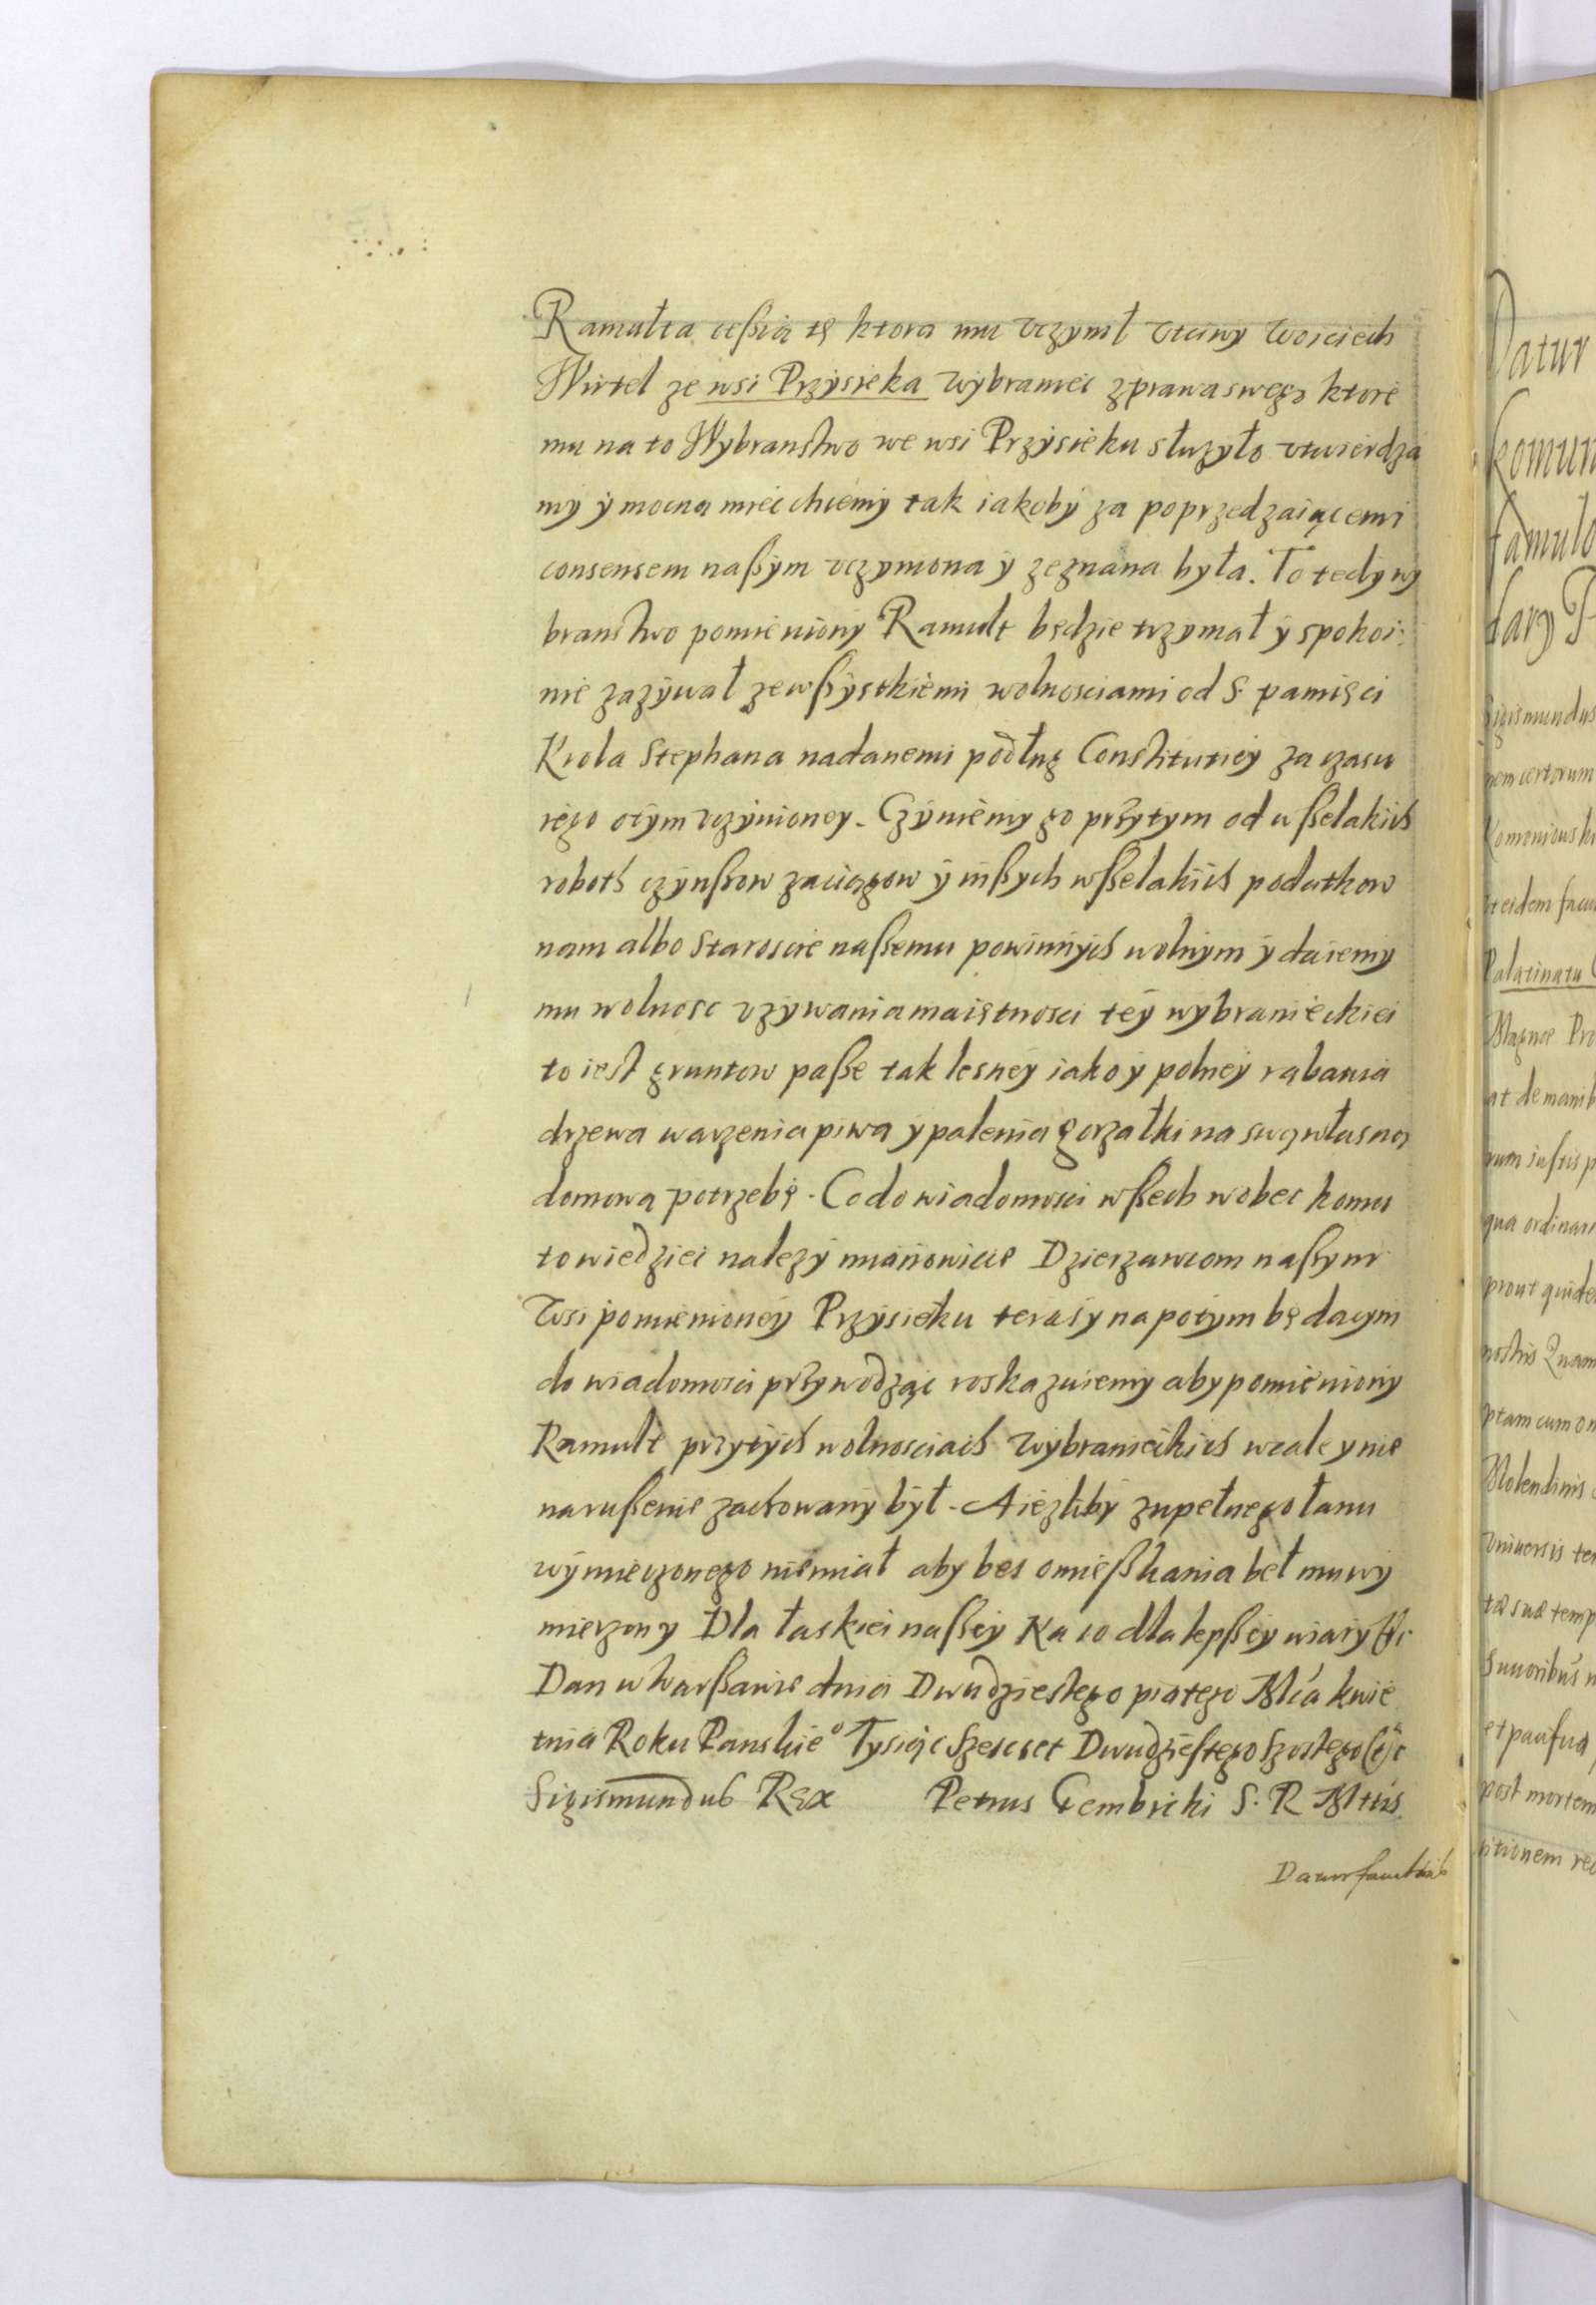 Ramułta ceßią tę ktora mu vczynił vtciwy Woiciech
Wirtel ze wsi Przysieka Wybraniec z prawa swego ktore
mu na to Wybranstwo we wsi Przysieku służyło vtwierdza
my y mocną miec chcemy tak iakoby za poprzedzaiącemi
consensem naßym vczyniona y zeznana była. To tedy wy
branstwo pomieniony Ramult będzie trzymał y spokoi:
nie zazywał ze wßystkiemi wolnosciami od S. pamięci
Krola Stephana nadanemi podług Constitutiey za czasu
iego o tym vczynioney. Czyniemy go przytym od wßelakich
roboth czynßow zaciągow y inßych wßelakich podatkow
nam albo Staroscie naßemu powinnych wolnym y daiemy
mu wolnosc vzywania maiętnosci tey wybranieckiei
to iest gruntow paße tak lesney iako y polney rąbania
drzewa warzenia piwa y palenia gorzałki na swą własną
domową potrzebę. Co do wiadomosci wßech wobec komu
to wiedziec nalezy mianowicie Dzierzawcom naßym
Wsi pomienioney Przysieku teras y napotym będacym
do wiadomosci przywodząc roskazuiemy aby pomieniony
Ramult przytych wolnosciach Wybranieckich wcale y nie
narußenie zachowany był. A iezliby zupełnego łanu
wymierzonego niemiał aby bes omießkania beł mu wy
mierzony Dla łaskiei naßey Na co dla lepßey wiary etc
Dan w Warßawie dnia Dwudziestego piątego Mca kwie
tnia Roku Panskieo Tysiąc Szescset Dwudziestego Szostego etc
Sigismundus Rex Petrus Gembicki S. R. Mttis
Datur facultas
Datur
famulo
Sigismundus
nem certorum
Palatinatu
Magnae Pro
qua ordinari
prout quidem
nostris
ptam cum om
Molendinis
Vniuersis
post mortem